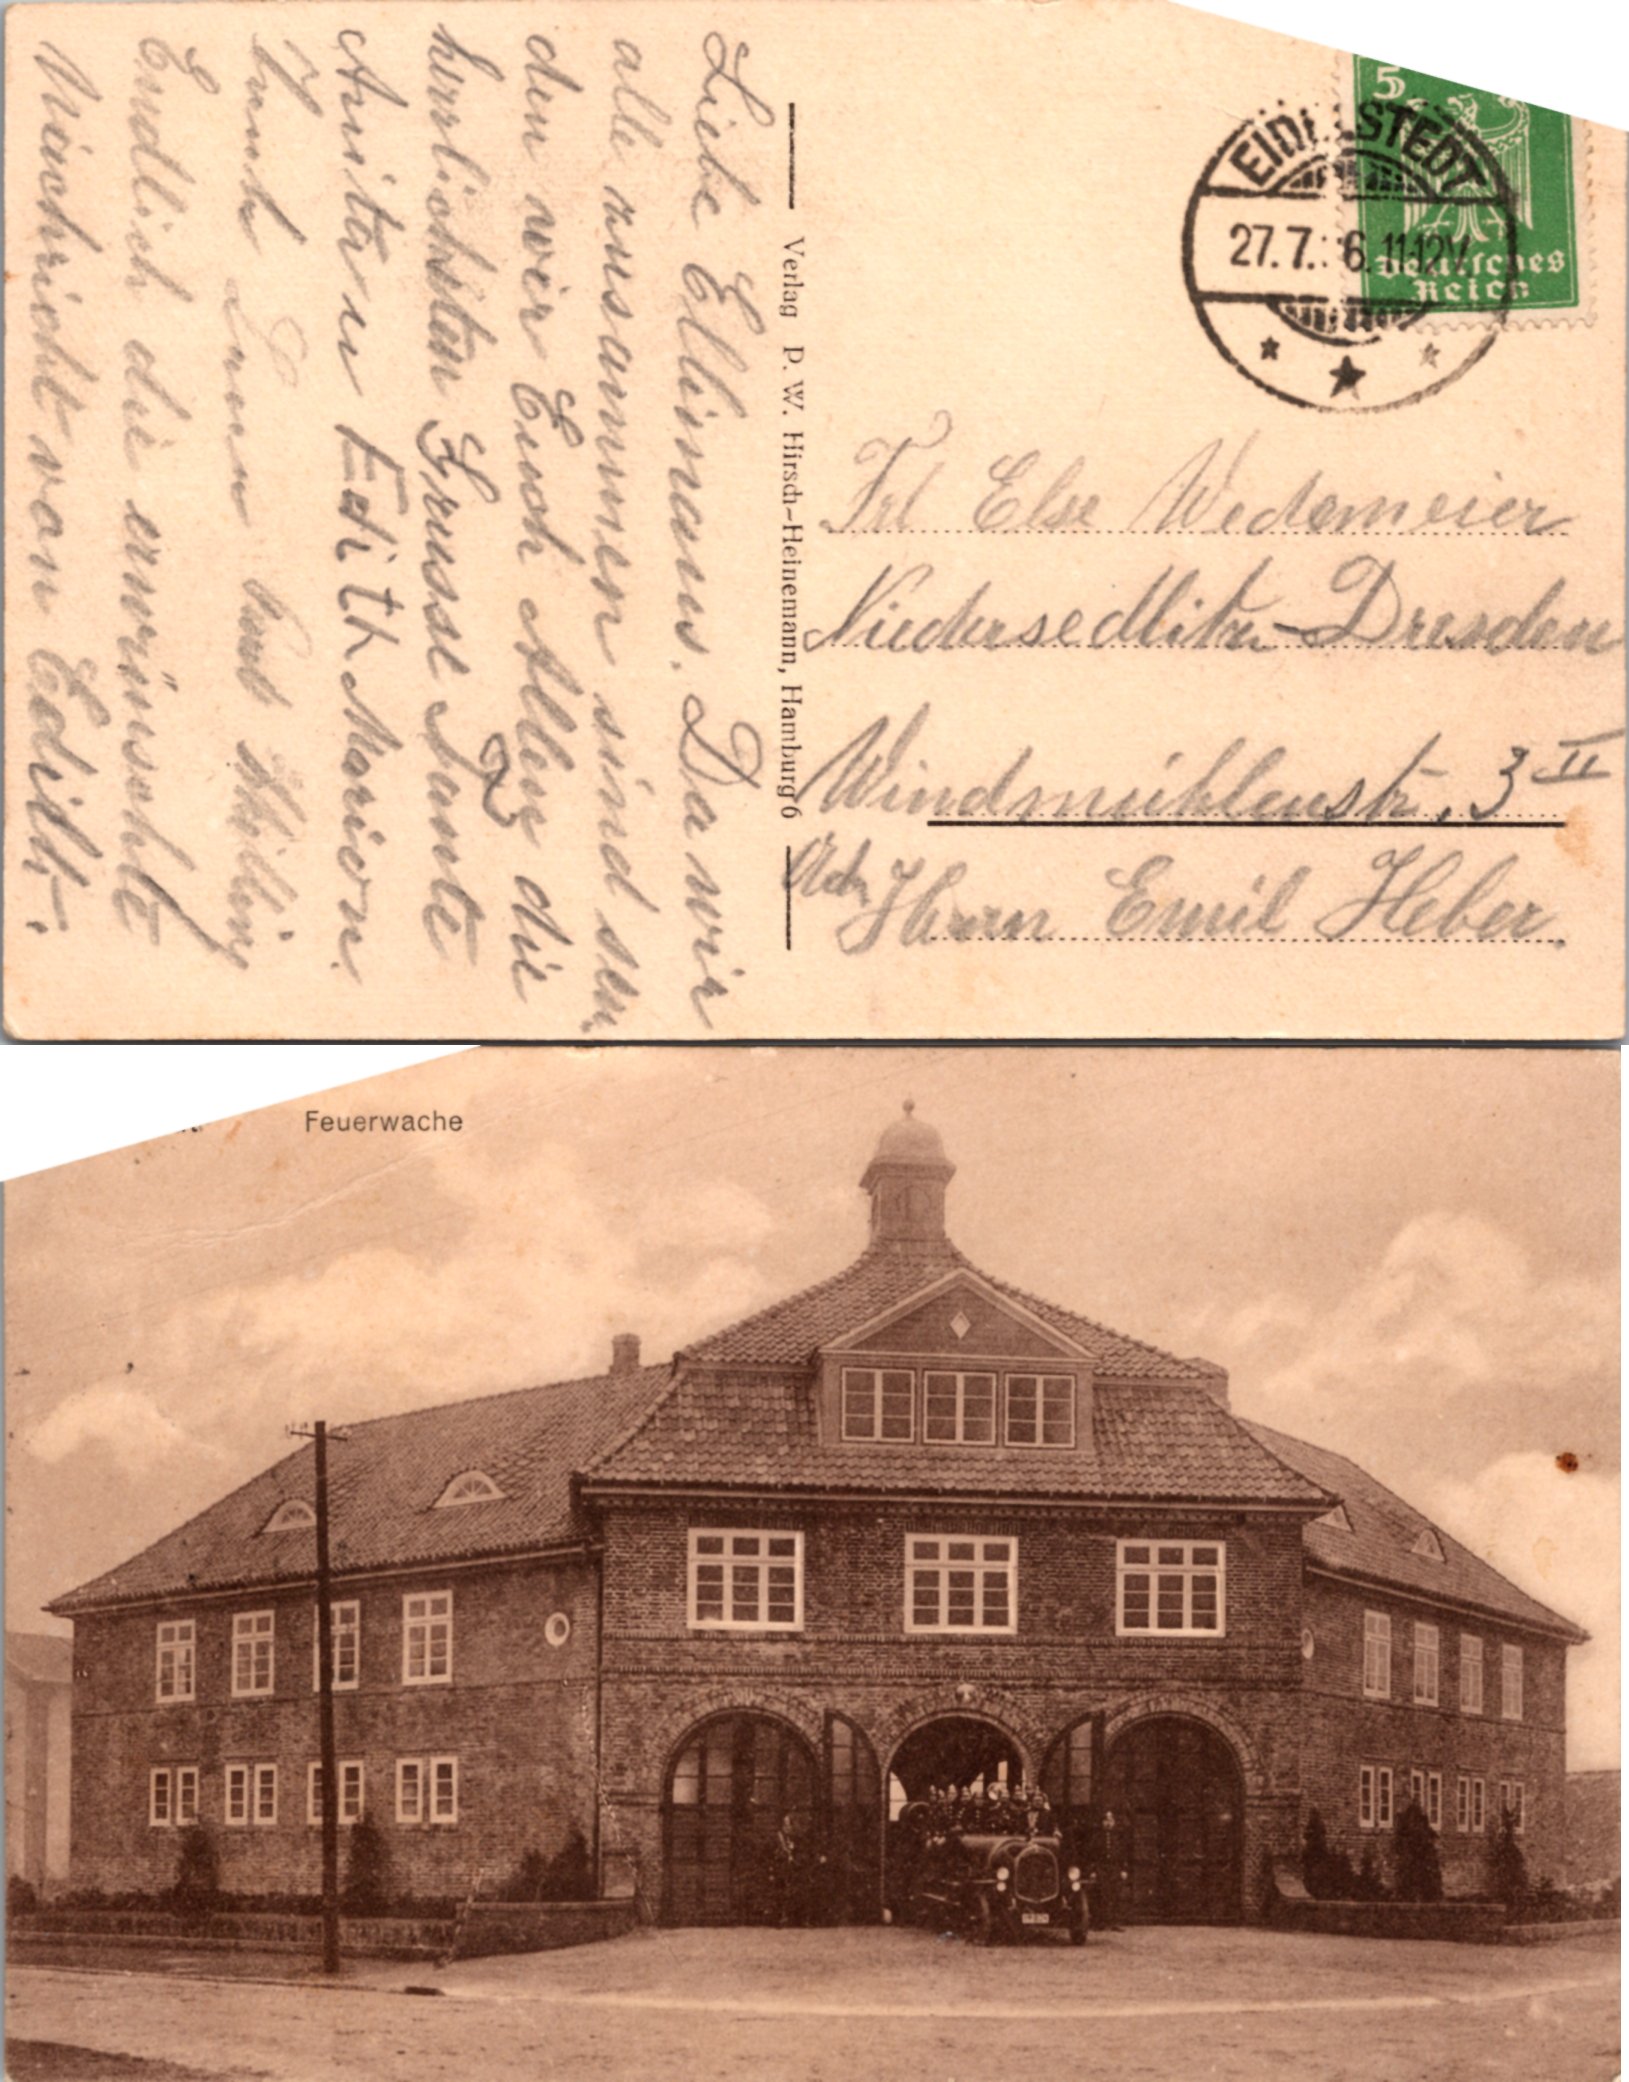 Liebe Ellimaus. Da wir
alle zusammen sind sen
den wir Euch Allen die
herrlichsten Grüsse Tante
Anita u Edith Marion.
Endlich die erwünschte
Nachricht von Edith.
Verlag P. W. Hirsch-Heinemann, Hamburg 6
5
Deutsches
Reich
EID STEDT
27.7. 6.11-12V.
Frl Else Wedemeier
Niedersedlitz-Dresden
Windmühlenstr. 3 II
Adr Herrn Emil Heber.
Feuerwache